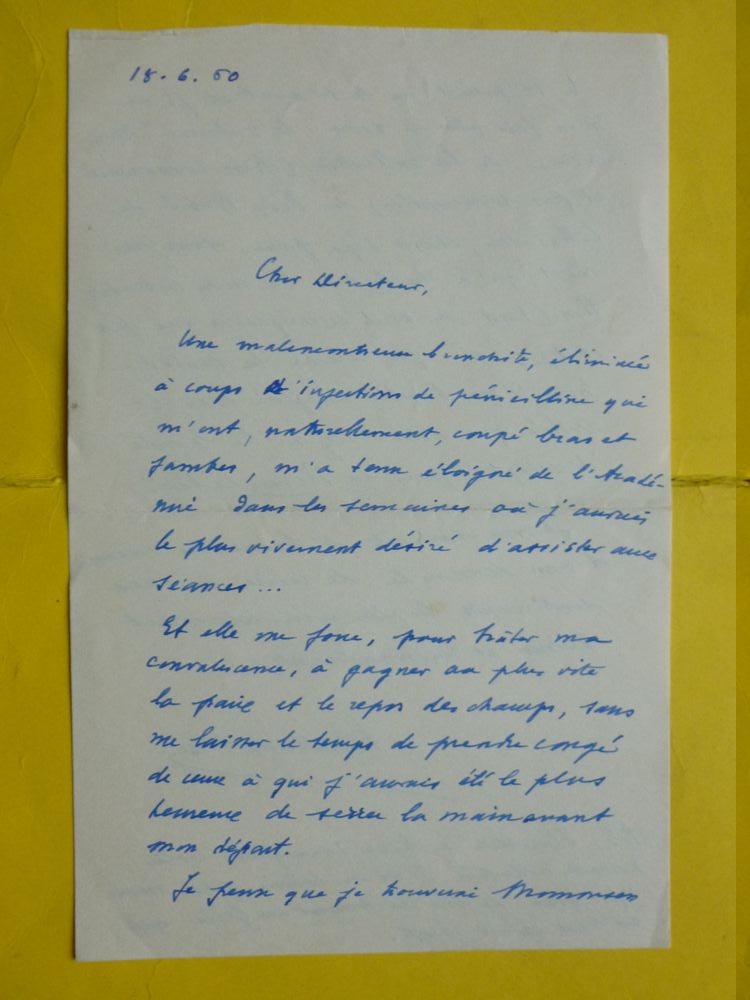 18.6.50
Cher Directeur,
Une malencontreuse bronchite, éliminée
à coups d'injections de pénicilline qui
m'ont, naturellement, coupé bras et
jambes, m'a tenu éloigné de l'Acadé-
mie dans les semaines où j'aurais
le plus vivement désiré d'assister aux
séances...
Et elle me force, pour hâter ma
convalescence, à gagner au plus vite
la paix et le repos des champs, sans
me laisser le temps de prendre congé
de ceux à qui j'aurais été le plus
heureux de serrer la main avant
mon départ.
Je pense que je trouverai